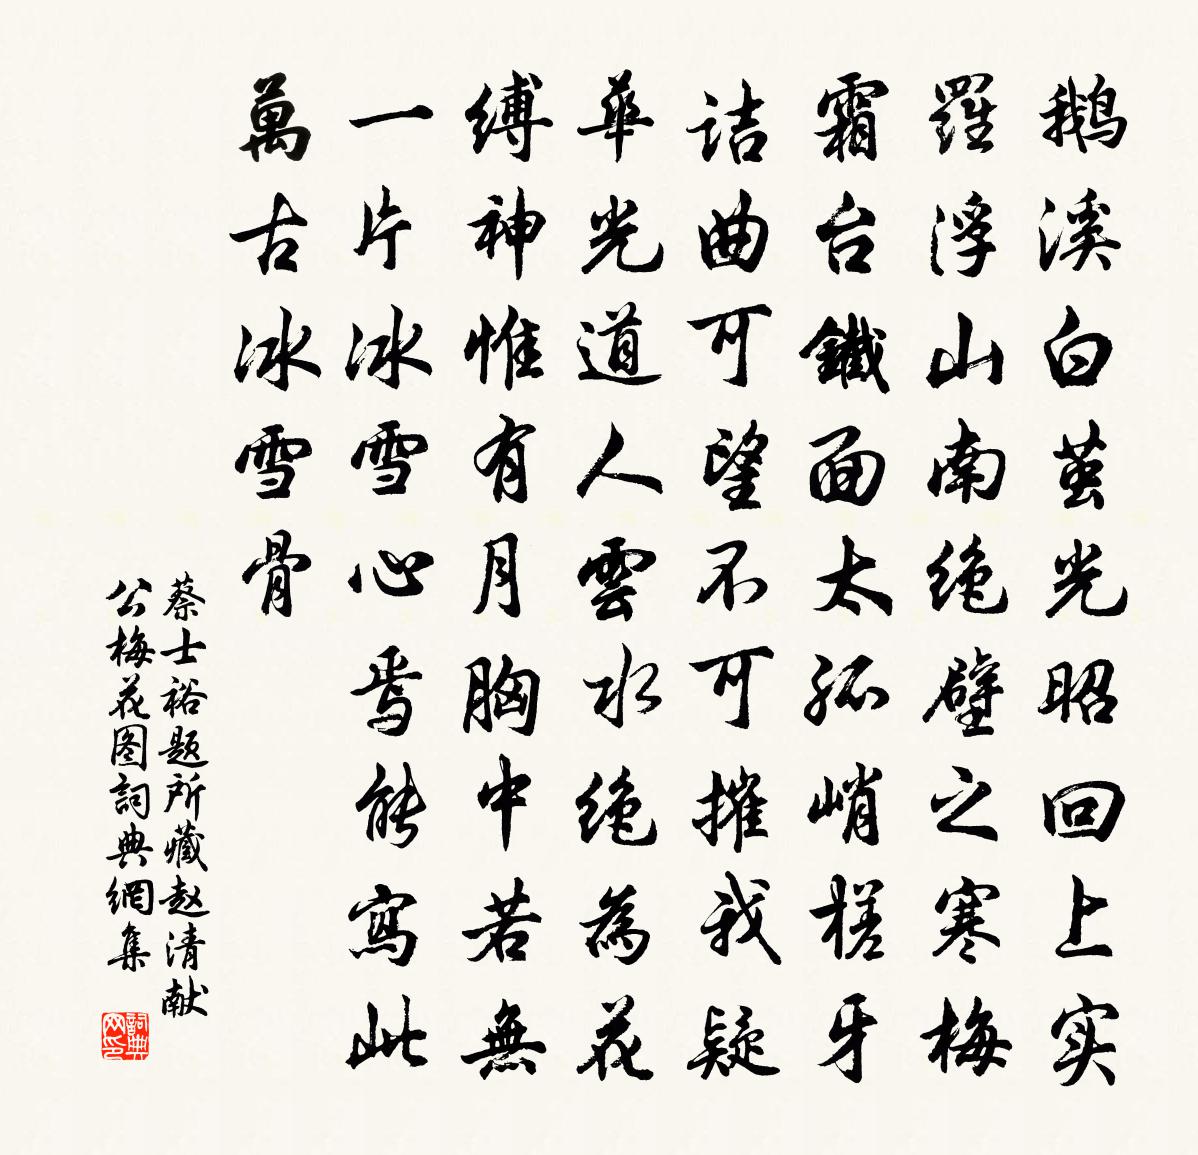 鹅溪白茧光昭回上实
羅浮山南绝壁之寒梅
霜台鐵面太孤峭槎牙
诘曲可望不可摧我疑
華光道人雲水绝為花
縛神惟有月胸中若無
一片冰雪心焉能寫此
萬古冰雪骨
蔡士裕题所藏赵清献
公梅花图詞典網集
詞典网印